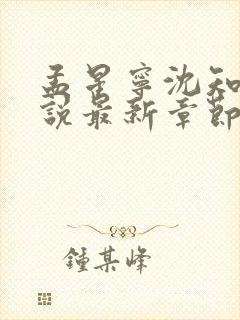 孟星寧沈知
說最新章節
鍾某峰